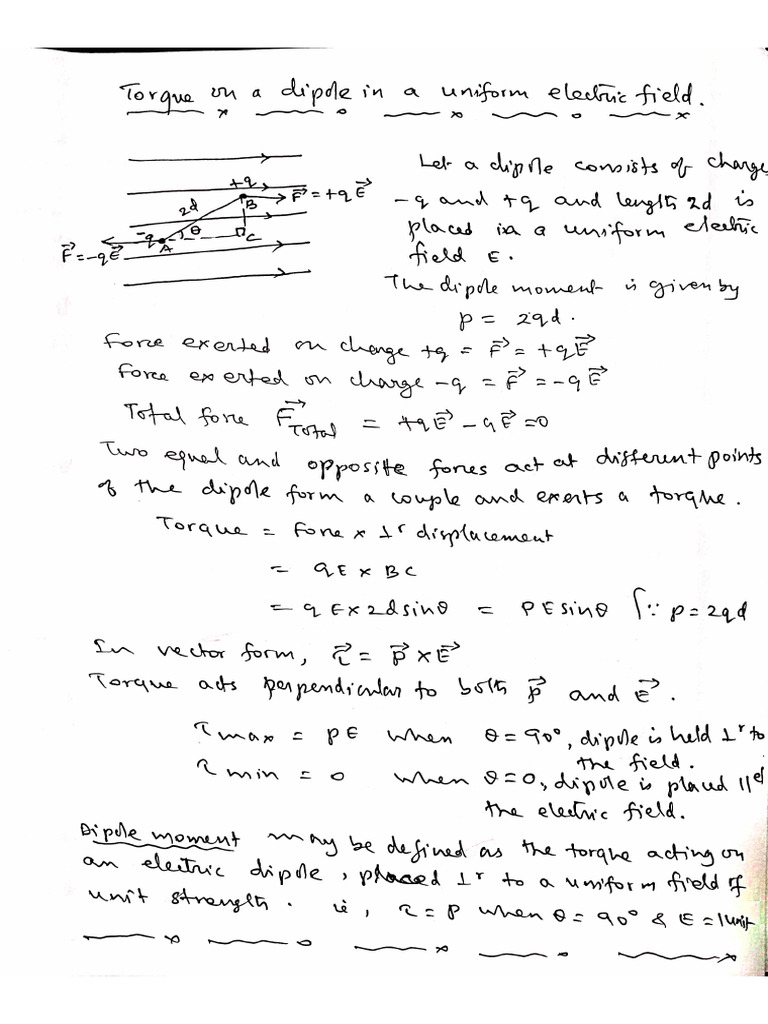 Torque on a dipole in a uniform electric field.
Let a dipole consists of charge
-q and +q and length 2d is
placed in a uniform electric
field E.
+q
B
F⃗ = +qE⃗
2d
θ
-q
A
C
F⃗ = -qE⃗
The dipole moment is given by
p = 2qd.
Force exerted on charge +q = F⃗ = +qE⃗
Force exerted on charge -q = F⃗ = -qE⃗
Total force F⃗Total = +qE⃗ - qE⃗ = 0
Two equal and opposite forces act at different points
of the dipole form a couple and exerts a torque.
Torque = Force × ⊥r displacement
= qE × BC
= qE × 2d sinθ = PE sinθ [∵ p = 2qd
In vector form, τ⃗ = P⃗ × E⃗
Torque acts perpendicular to both P⃗ and E⃗.
τmax = PE when θ = 90°, dipole is held ⊥r to
the field.
τmin = 0 when θ = 0, dipole is placed ||el
the electric field.
Dipole moment may be defined as the torque acting on
an electric dipole, placed ⊥r to a uniform field of
unit strength. ie, τ = P when θ = 90° & E = 1 unit